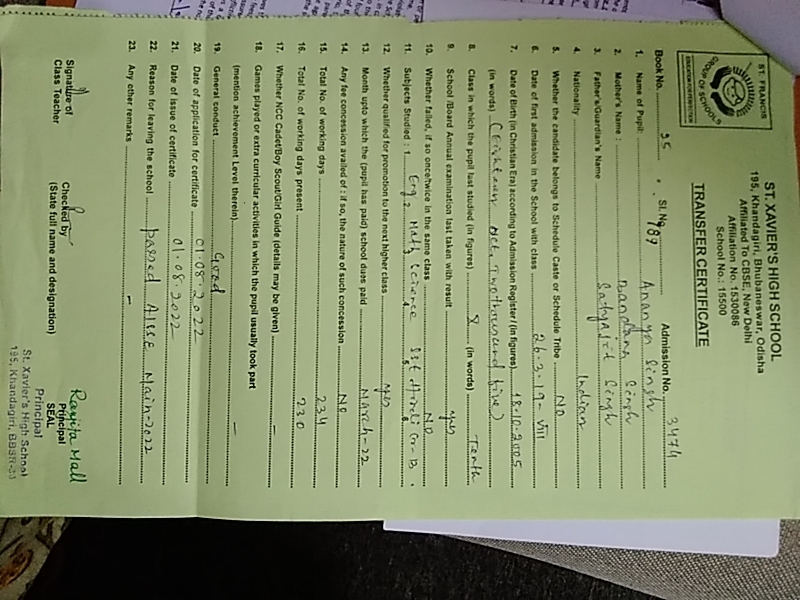 ST. XAVIER'S HIGH SCHOOL
195, Khandagiri, Bhubaneswar, Odisha
Affiliated To CBSE, New Delhi
Affiliation No. 1530086
School No.: 15500
ST. FRANCIS
GROUP OF SCHOOLS
TRANSFER CERTIFICATE
Book No. 35 Sl. No. 789 Admission No. 3474
1. Name of Pupil: Ananya Singh
2. Mother's Name : Bandana Singh
3. Father's/Guardian's Name Satyajit Singh
4. Nationality Indian
5. Whether the candidate belongs to Schedule Caste or Schedule Tribe NO
6. Date of first admission in the School with class 26.3.19 - VIII
7. Date of Birth (in Christian Era) according to Admission Register (in figures) 18.10.2005
(in words) (Eighteen Oct. Two thousand five)
8. Class in which the pupil last studied (in figures) X (in words) Tenth
9. School /Board Annual examination last taken with result yes
10. Whether failed, if so once/twice in the same class NO
11. Subjects Studied : 1. Eng 2. Math 3. Science 4. SSt 5. Hindi Cr-B 6.
12. Whether qualified for promotion to the next higher class yes
13. Month upto which the (pupil has paid) school dues paid March-22
14. Any fee concession availed of : if so, the nature of such concession NO
15. Total No. of working days 234
16. Total No. of working days present 230
17. Whether NCC Cadet/Boy Scout/Girl Guide (details may be given) —
18. Games played or extra curricular activities in which the pupil usually took part
(mention achievement Level therein) —
19. General conduct Good
20. Date of application for certificate 01.08.2022
21. Date of issue of certificate 01.08.2022
22. Reason for leaving the school passed AISSE Main-2022
23. Any other remarks –
Signature of
Class Teacher
Checked by
(State full name and designation)
Ranjita Mall
Principal
SEAL
Principal
St. Xavier's High School
195, Khandagiri, BBSR-30